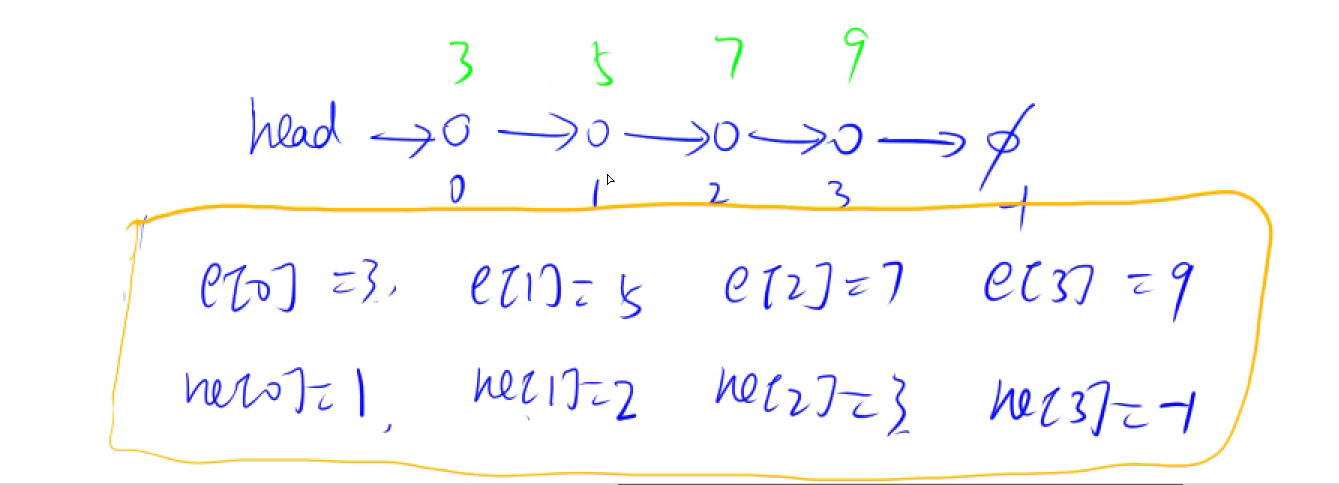 3 5 7 9
head → O → O → O → O → ∅
0 1 2 3 -1
e[0]=3, e[1]=5 e[2]=7 e[3]=9
ne[0]=1, ne[1]=2 ne[2]=3 ne[3]=-1